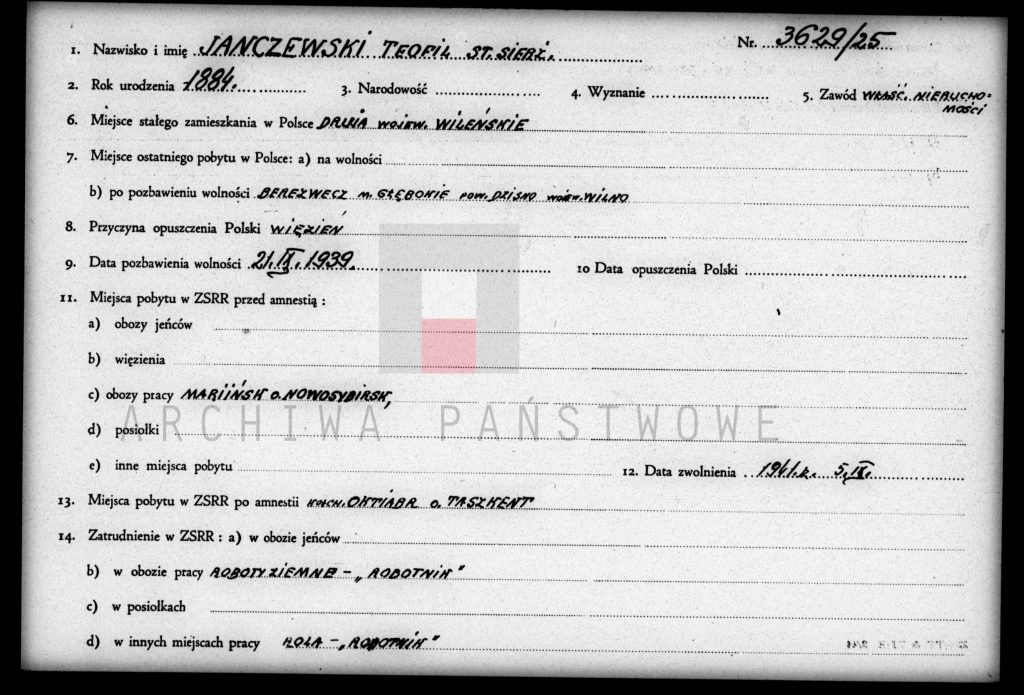 1. Nazwisko i imię JANCZEWSKI TEOFIL ST. SIERŻ. Nr. 3629/25
2. Rok urodzenia 1884. 3. Narodowość 4. Wyznanie 5. Zawód WŁAŚC. NIERUCHO-
MOŚCI
6. Miejsce stałego zamieszkania w Polsce DRUIA WOJEW. WILEŃSKIE
7. Miejsce ostatniego pobytu w Polsce: a) na wolności
b) po pozbawieniu wolności BEREZWECZ m. GŁĘBOKIE POW. DZISNO WOJEW. WILNO
8. Przyczyna opuszczenia Polski WIĘZIEŃ
9. Data pozbawienia wolności 21. IX. 1939. 10 Data opuszczenia Polski
11. Miejsca pobytu w ZSRR przed amnestią :
a) obozy jeńców
b) więzienia
c) obozy pracy MARIIŃSK o. NOWOSYBIRSK,
ARCHIWA PAŃSTWOWE
d) posiołki
e) inne miejsca pobytu 12. Data zwolnienia 1941.r. 5. IX.
13. Miejsca pobytu w ZSRR po amnestii KOŁCH. OKTIABR o. TASZKENT
14. Zatrudnienie w ZSRR : a) w obozie jeńców
b) w obozie pracy ROBOTY ZIEMNE – „ROBOTNIK"
c) w posiołkach
d) w innych miejscach pracy ROLA – „ROBOTNIK"